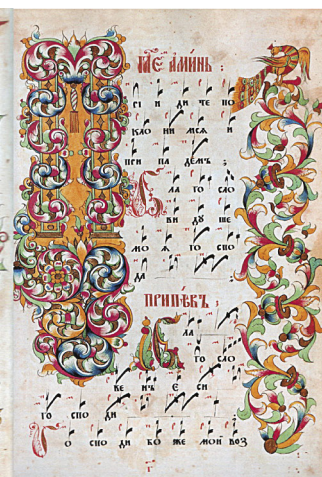 ГЛЕ҃ АМИ́НЬ :
СІ И ДИ ТЕ ПО
КЛО НИ МСѦ И
ПРИ ПА ДЕМЪ ;
Б ЛА ГО СЛО
ВИ ДУ ШЕ
МО Ѧ ГО СПО
ДА
ПРИПѢВЪ :
Б ЛА
ГО СЛО
ВЕ НЪ Є СИ
ГО СПО ДИ
Г О СПО ДИ БО ЖЕ МОИ ВОЗ